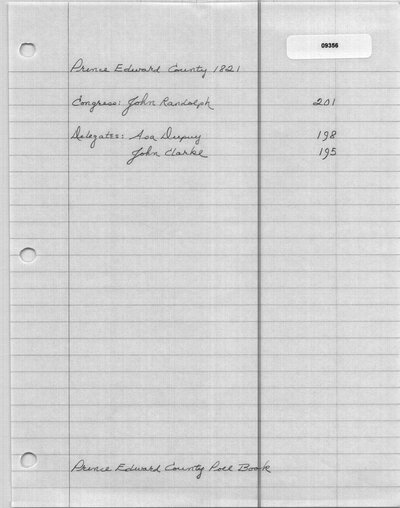 09356
Prince Edward County 1821
Congress: John Randolph 201
Delegates: Asa Dupuy 198
John Clarke 195
Prince Edward County Poll Book